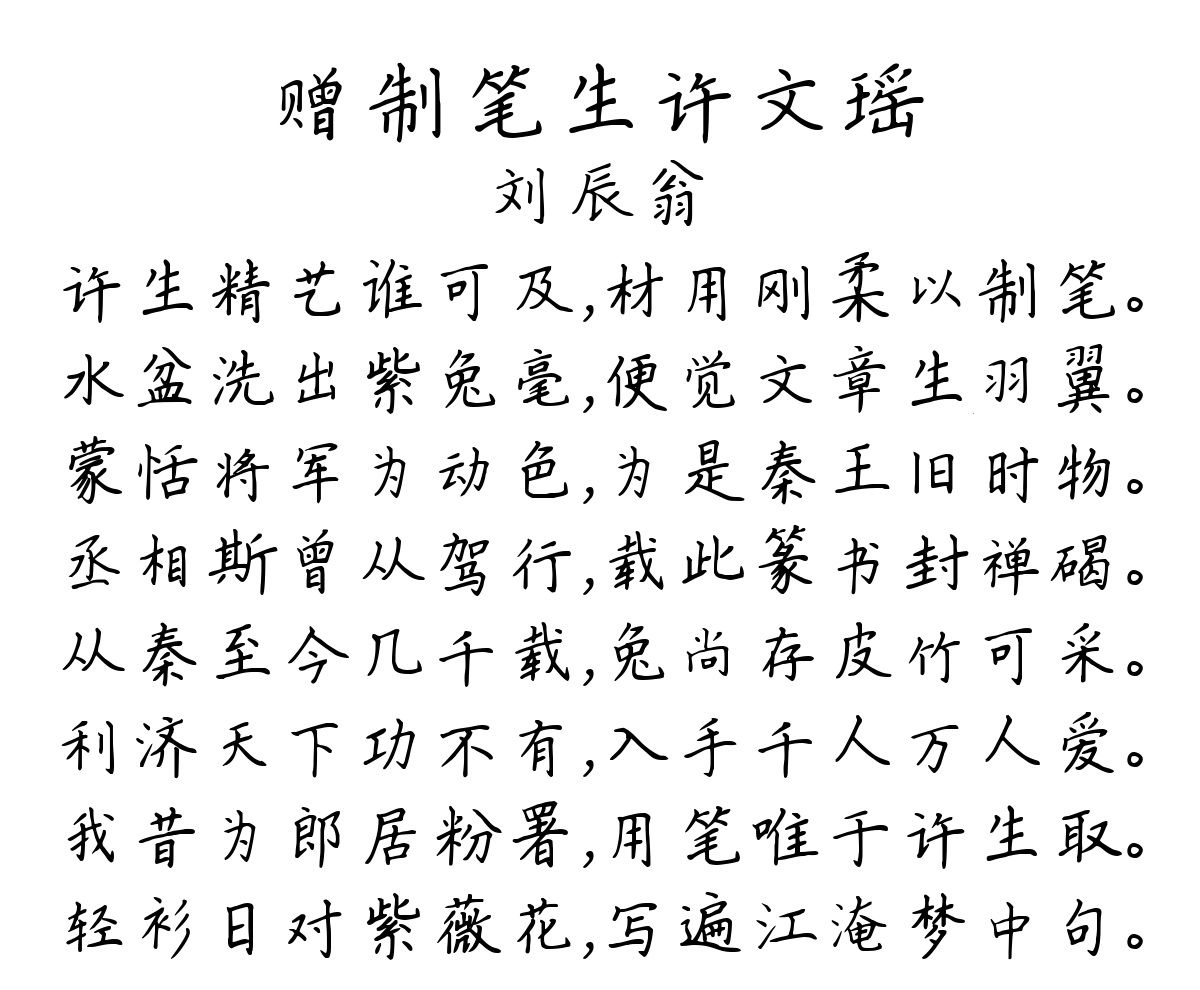 赠制笔生许文瑶
刘辰翁
许生精艺谁可及,材用刚柔以制笔。
水盆洗出紫兔毫,便觉文章生羽翼。
蒙恬将军为动色,为是秦王旧时物。
丞相斯曾从驾行,载此篆书封禅碣。
从秦至今几千载,兔尚存皮竹可采。
利济天下功不有,入手千人万人爱。
我昔为郎居粉署,用笔唯于许生取。
轻衫日对紫薇花,写遍江淹梦中句。